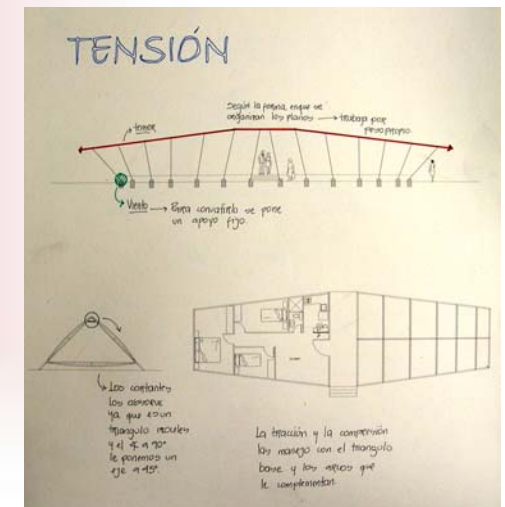 TENSIÓN
Según la forma, en que se
organizan los planos → trabaja por
peso propio.
Viento → Para convatirlo se pone
un apoyo fijo.
Los cortantes
los absorve
ya que es un
triangulo
y el a 90°
le ponemos un
eje a 45°.
La tracción y la compresión
las manejo con el triangulo
base y los arcos que
le complementan.